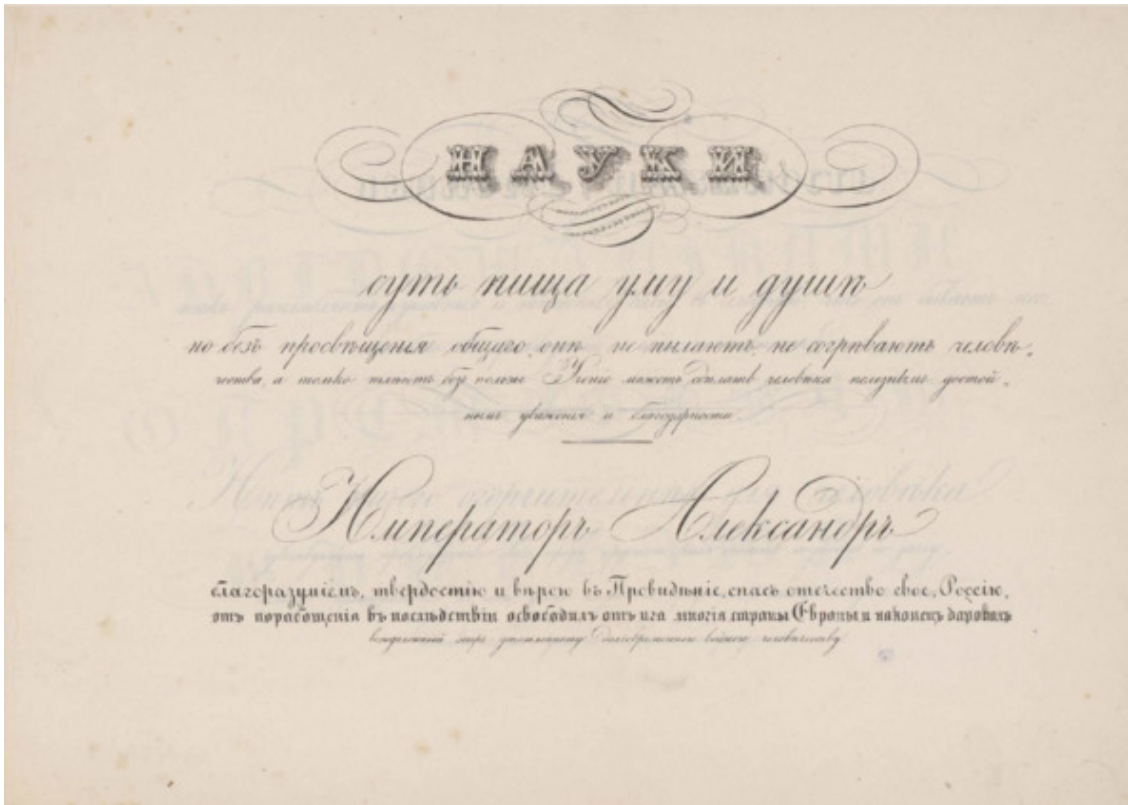 НАУКИ
суть пища уму и душѣ
но безъ просвѣщенія общаго, онѣ не пылаютъ, не согрѣваютъ человѣ-
чества, а только тлѣютъ безъ пользы Ученіе можетъ сдѣлать человѣка полезнымъ достой-
нымъ уваженія и благодарности.
Императоръ Александръ
благоразуміемъ, твердостію и вѣрою въ Провидѣніе, спасъ отечество свое, Россію,
отъ порабощенія въ послѣдствіи освободилъ отъ ига многія страны Европы и наконецъ даровалъ
миръ человѣчеству